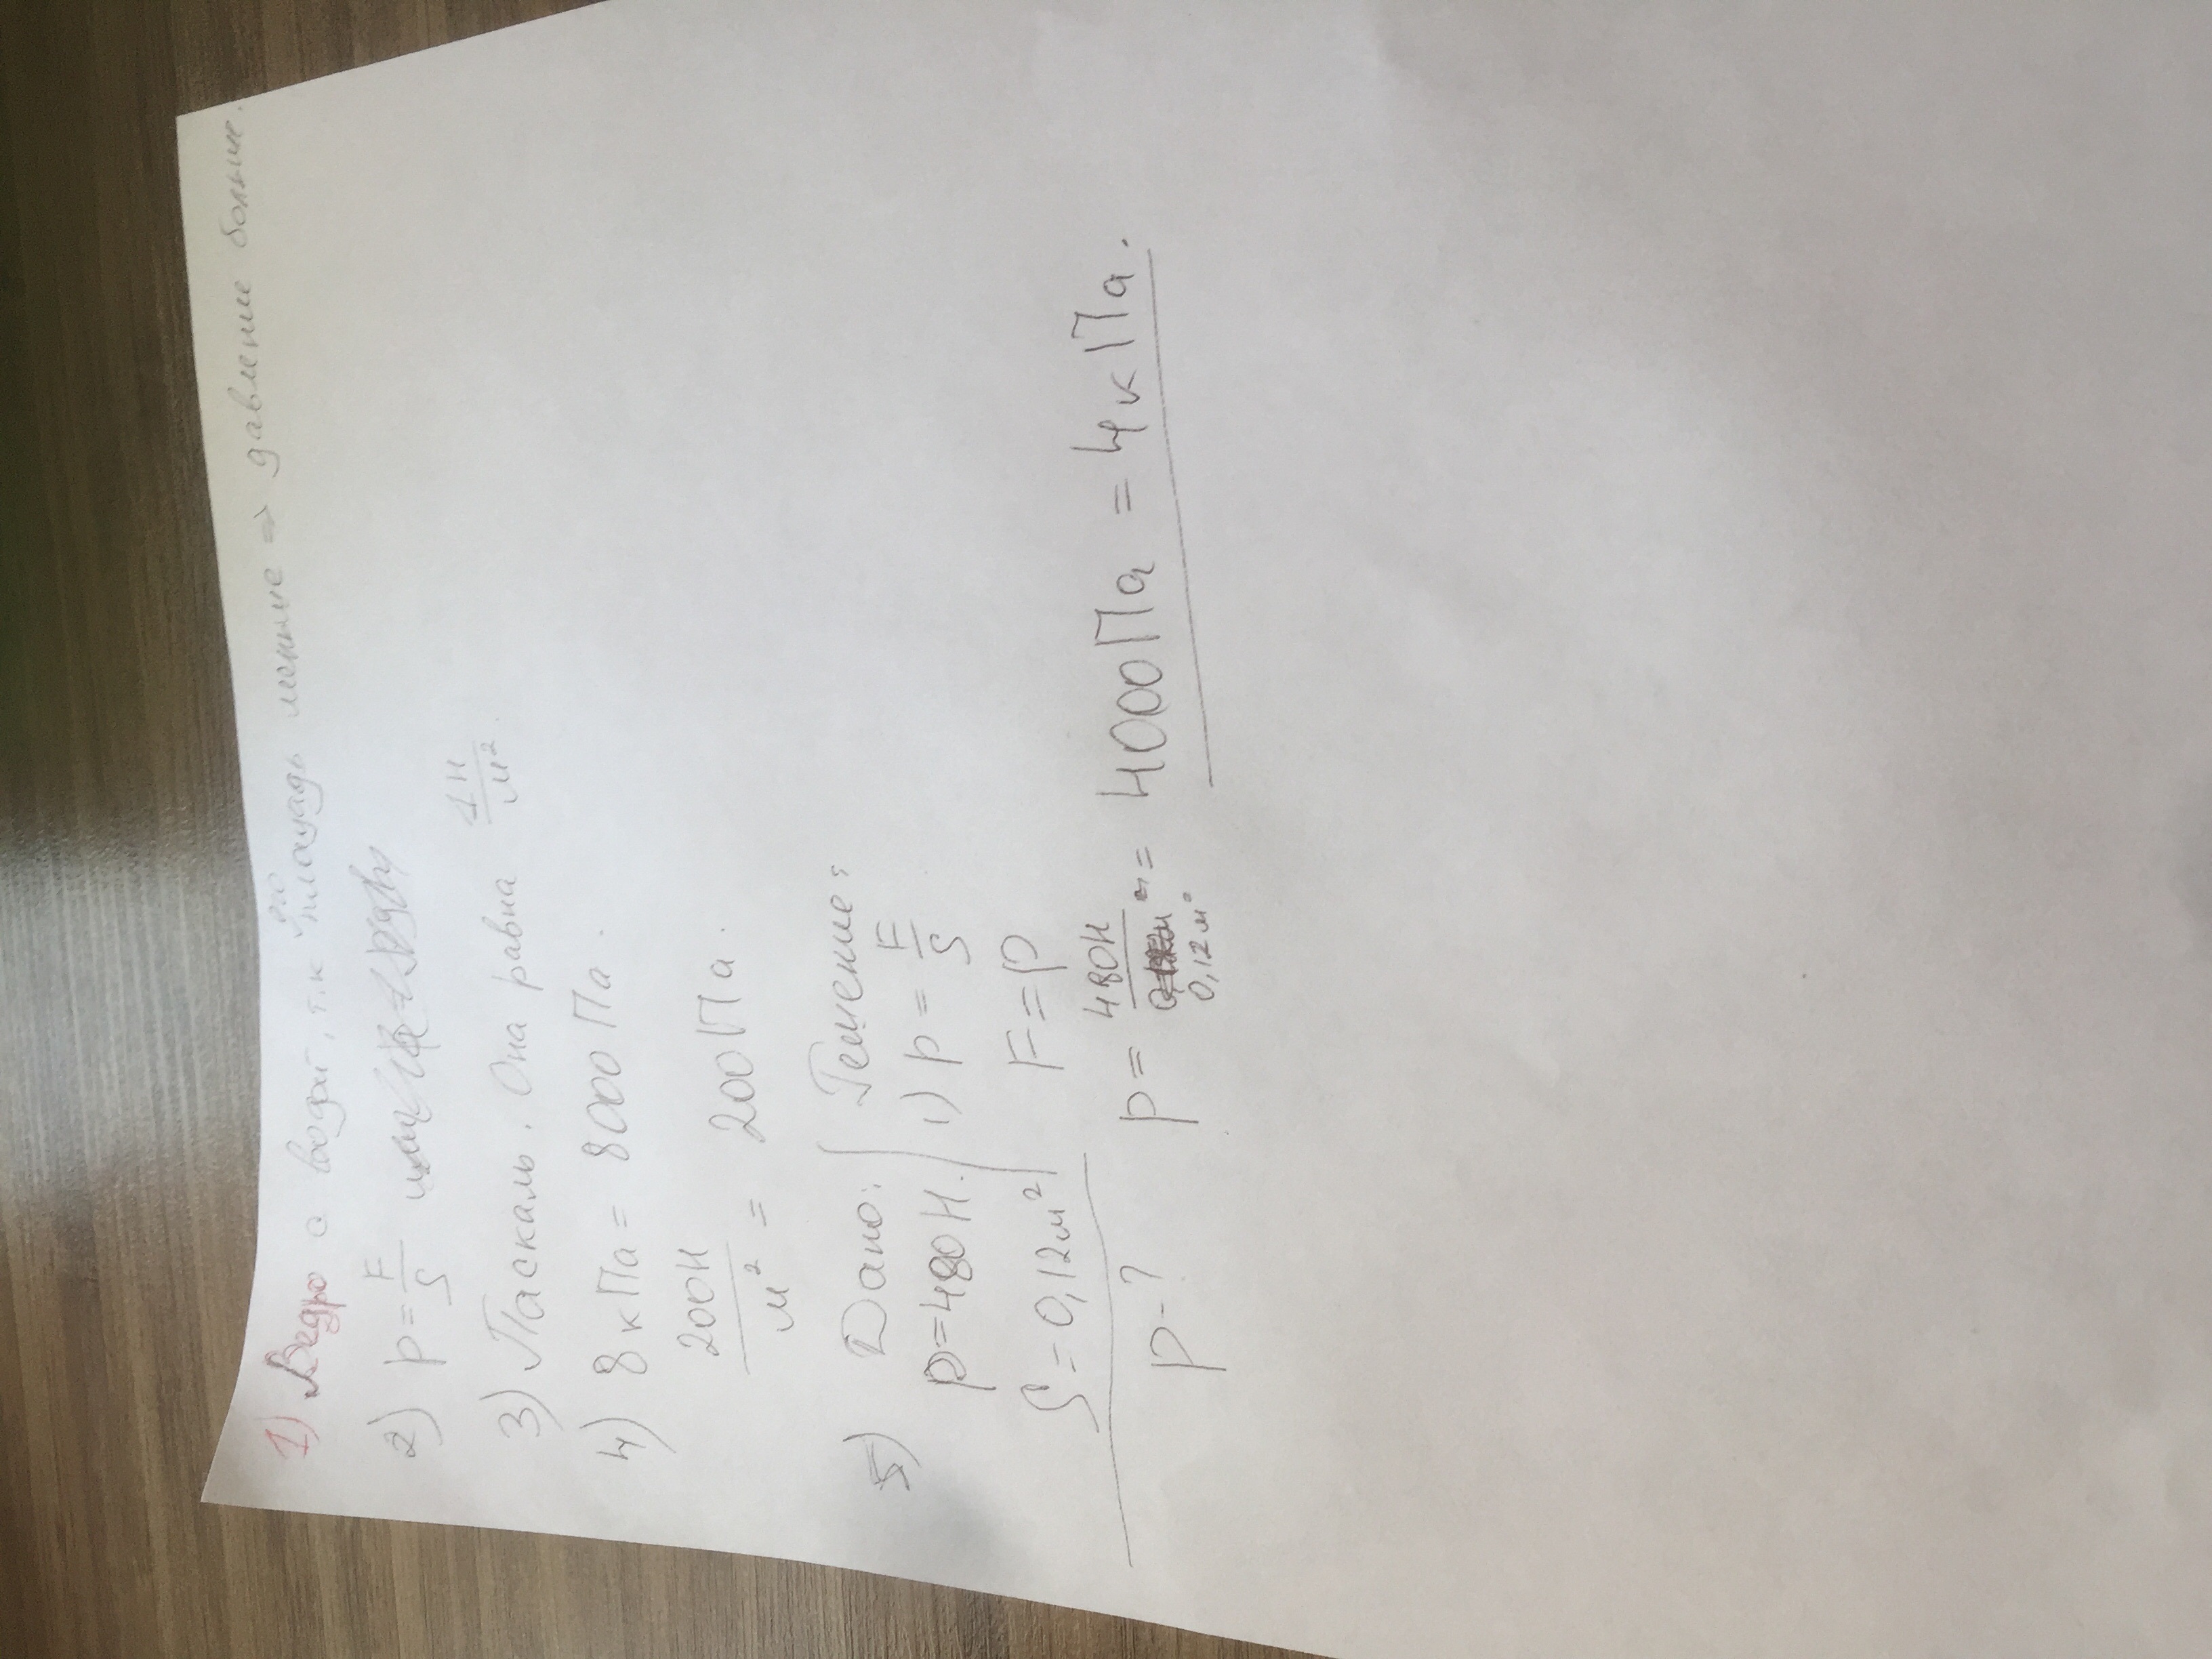 1) Ведро с водой, т.к дно площадь меньше ⇒ давление больше.
2) p = F/S
3) Паскаль. Она равна 1Н/м²
4) 8 кПа = 8000 Па.
200Н/м² = 200 Па.
5) Дано: Решение:
P=480Н. 1) p = F/S
S = 0,12м² F = P
p-? p = 480Н/0,12м² = 4000Па = 4кПа.